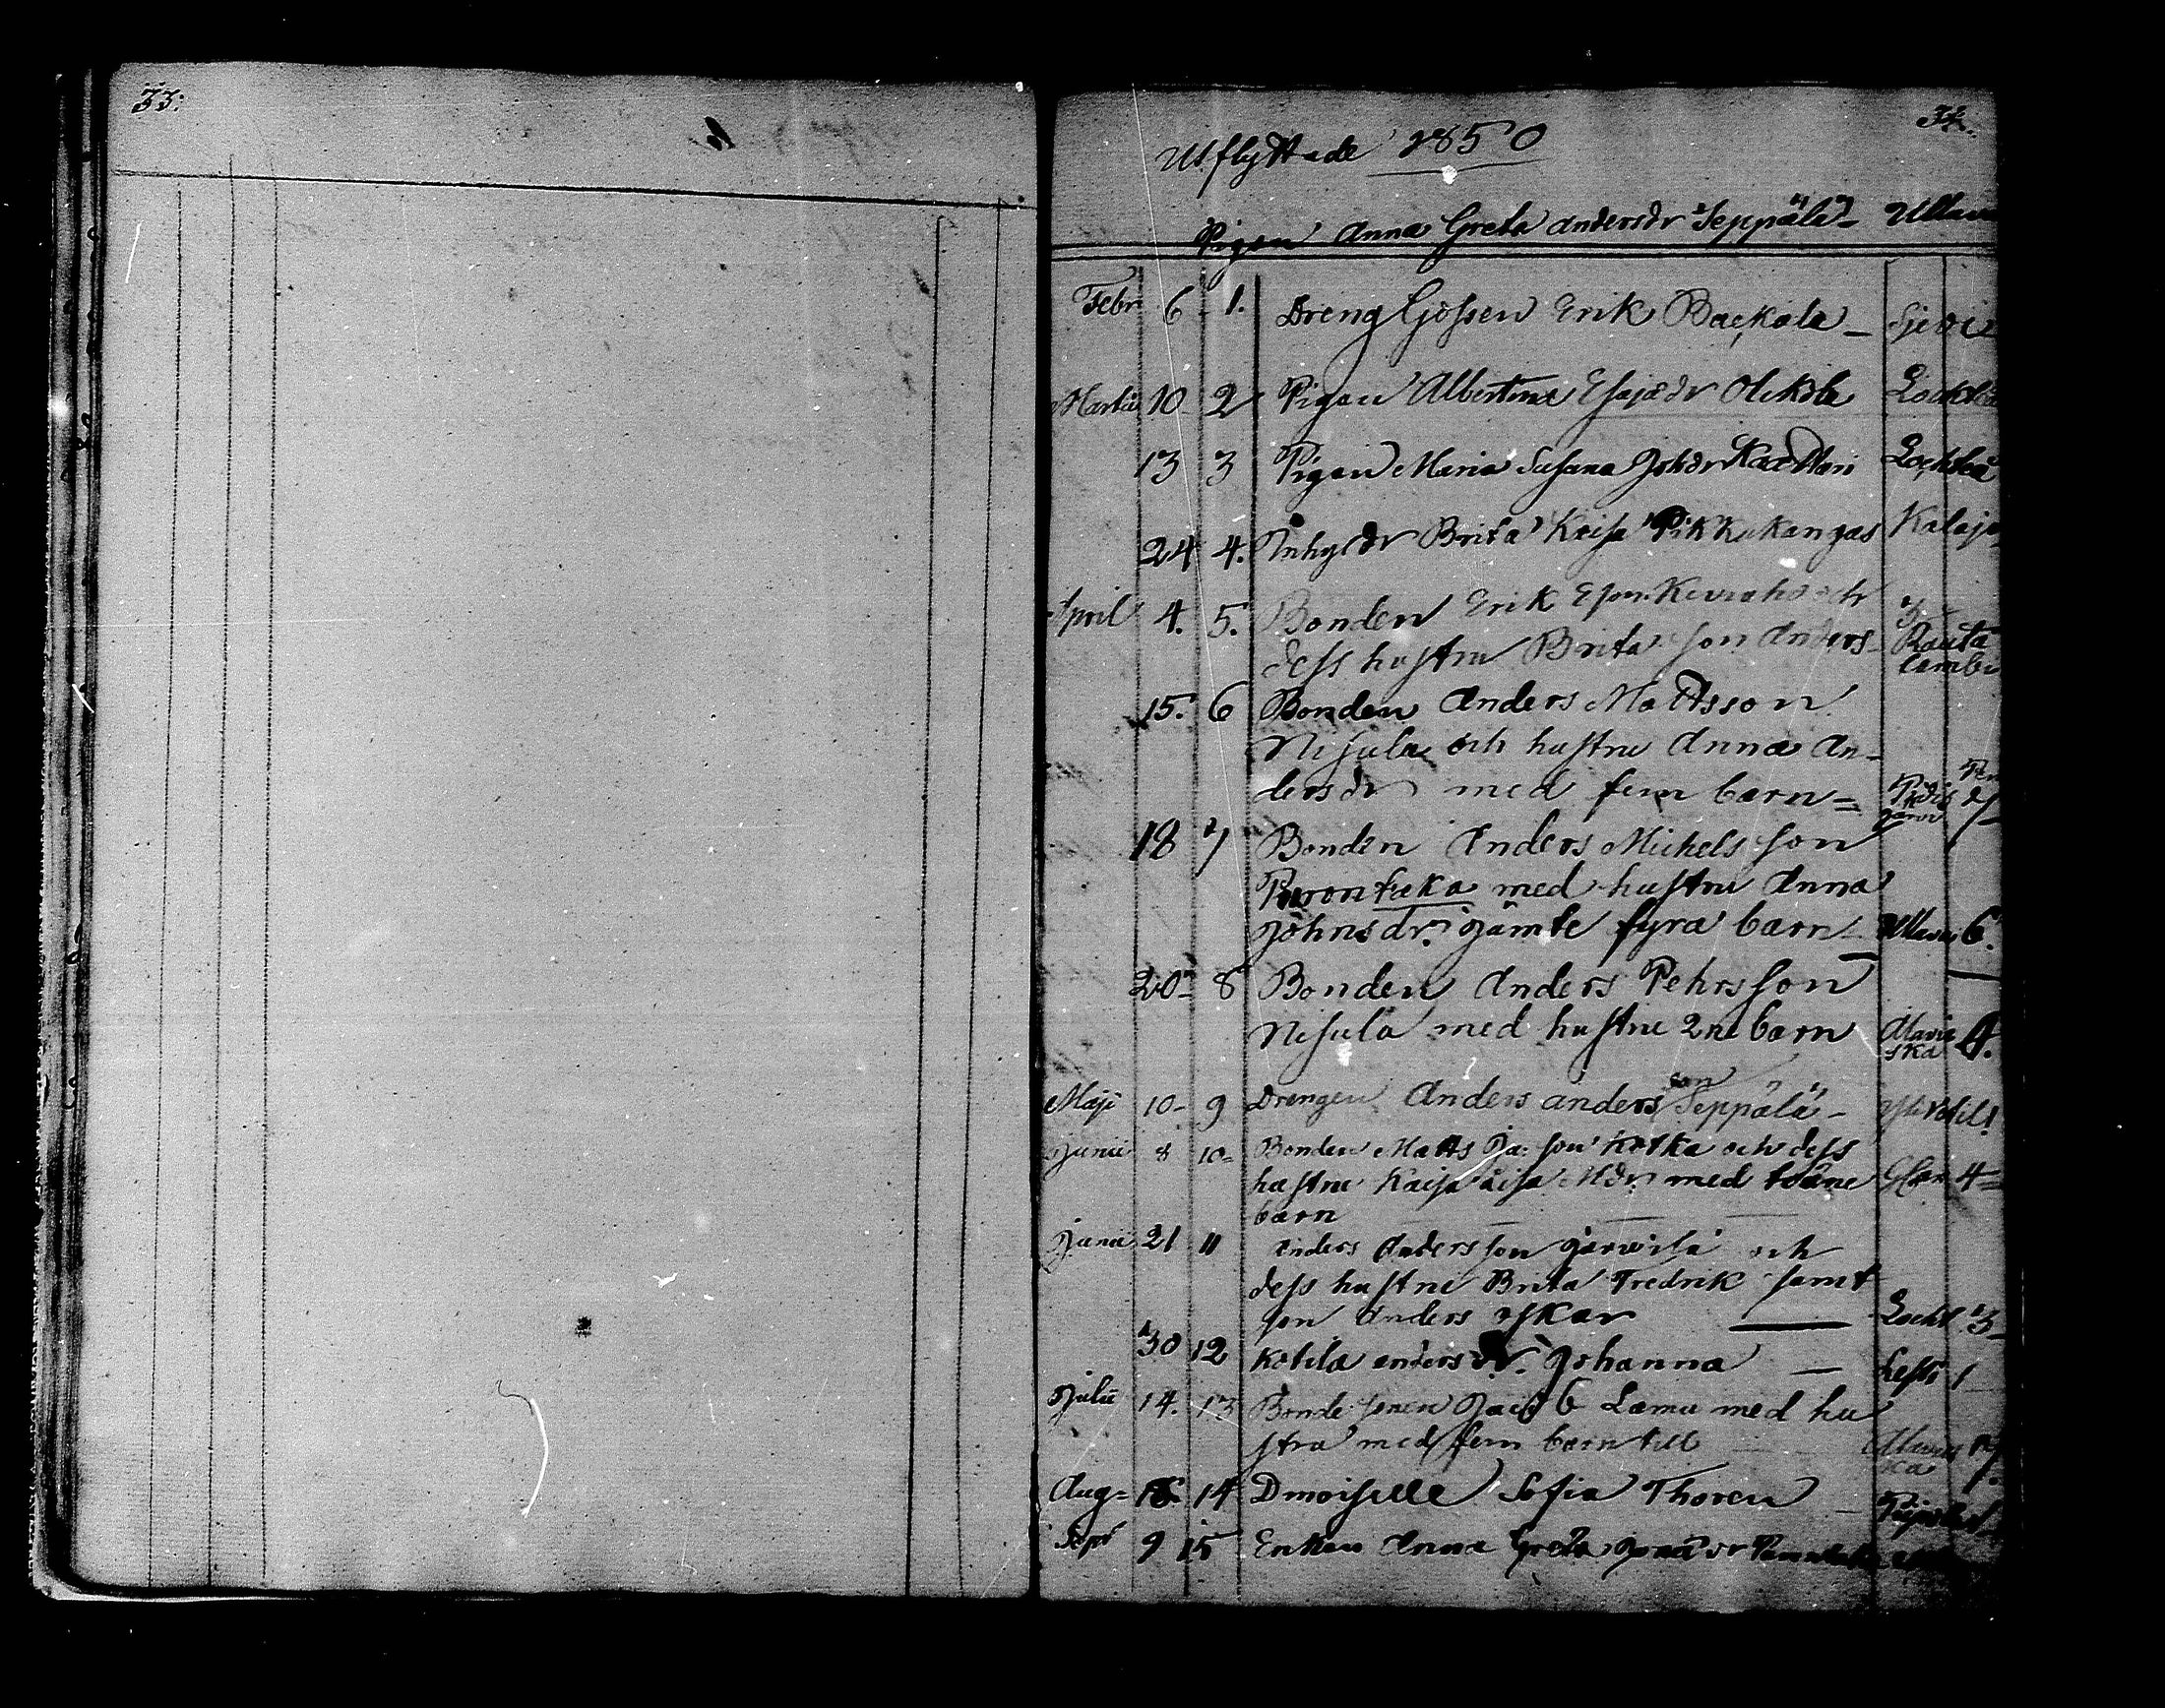 33:
34.
Utflyttade 1850
Pigan Anna Greta Andersdr Seppälä - Ullava
Febr 6 1. Drenggossen Erik Backala -
Martii 10 2 Pigan Albertina Esajædr Olikala Lochteå
13 3 Pigan Maria Susana Johdr Lochteå
24 4. Inhysdr Brita Kaisa Pikkukangas Kalajo
April 4. 5. Bonden Erik och
dess hustru Brita son Anders - Rauta
lambi
15. 6 Bonden Anders Mattsson
Nisula och hustru Anna An-
dersdr med fem barn =
18 7 Bonden Anders Michelsson
med hustru Anna
Johnsdr. jämte fyra barn - Ullava 6.
20 - 8 Bonden Anders Pehrsson
Nisula med hustru 2ne barn Alavie
ska 4.
Maji 10 - 9 Drengen Anders Andersson Seppälä -
Junii 8 10 = Bonden Matts Ja: son Kotka och dess
hustru Kaisa Lisa Mdr med tvåne 4 =
barn
Junii 21 11 Anders Andersson och
dess hustru Brita Fredrik samt
son Anders Oskar Locht 3 -
30 12 Kotila andersdr. Johanna - Lesti 1
Julii 14. 13 Bondesonen Jacob Lamu med hu
stru med fem barn till 7.
Aug = 14 Dmoiselle Sofia Thoren -
Sept 9 15 Enkan Anna Greta